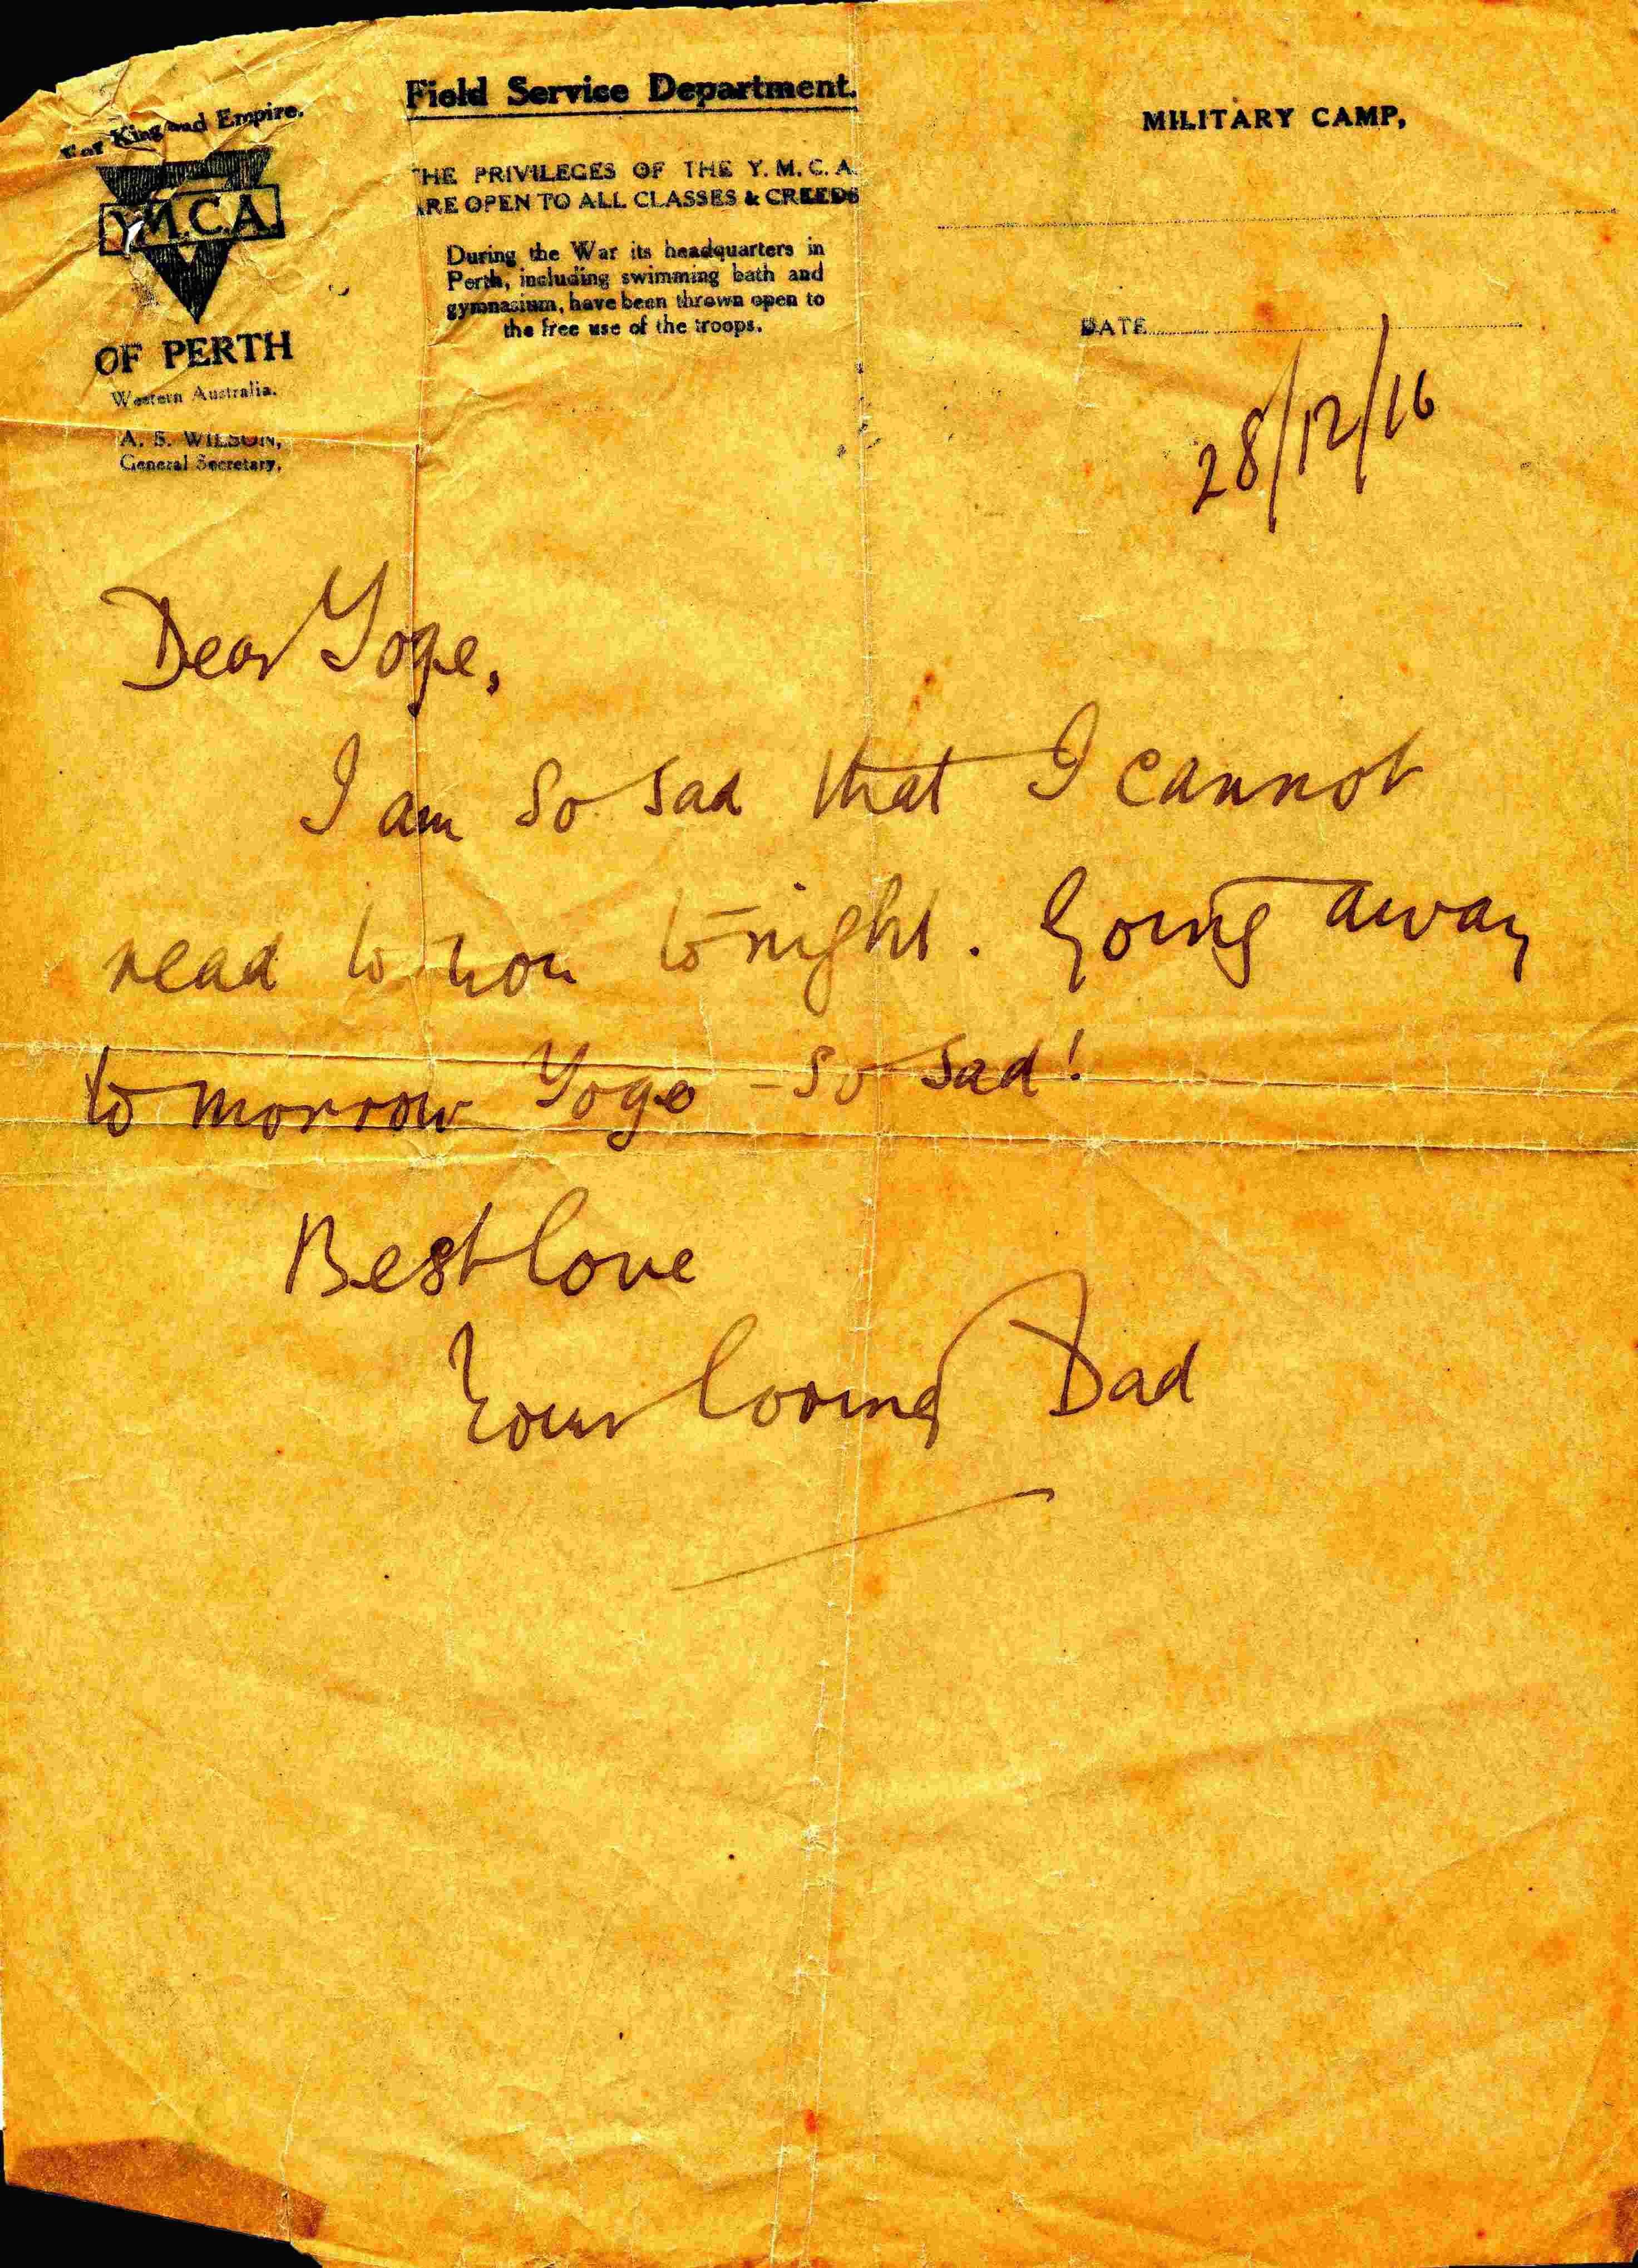 For King and Empire.
Y.M.C.A.
OF PERTH
Western Australia.
A. S. WILSON,
General Secretary.
Field Service Department.
THE PRIVILEGES OF THE Y. M. C. A.
ARE OPEN TO ALL CLASSES & CREEDS
During the War its headquarters in
Perth, including swimming bath and
gymnasium, have been thrown open to
the free use of the troops.
MILITARY CAMP,
DATE
28/12/16
Dear Yoge,
I am so sad that I cannot
read to you tonight. Going away
to morrow Yoge - so sad!
Best love
Your loving Dad